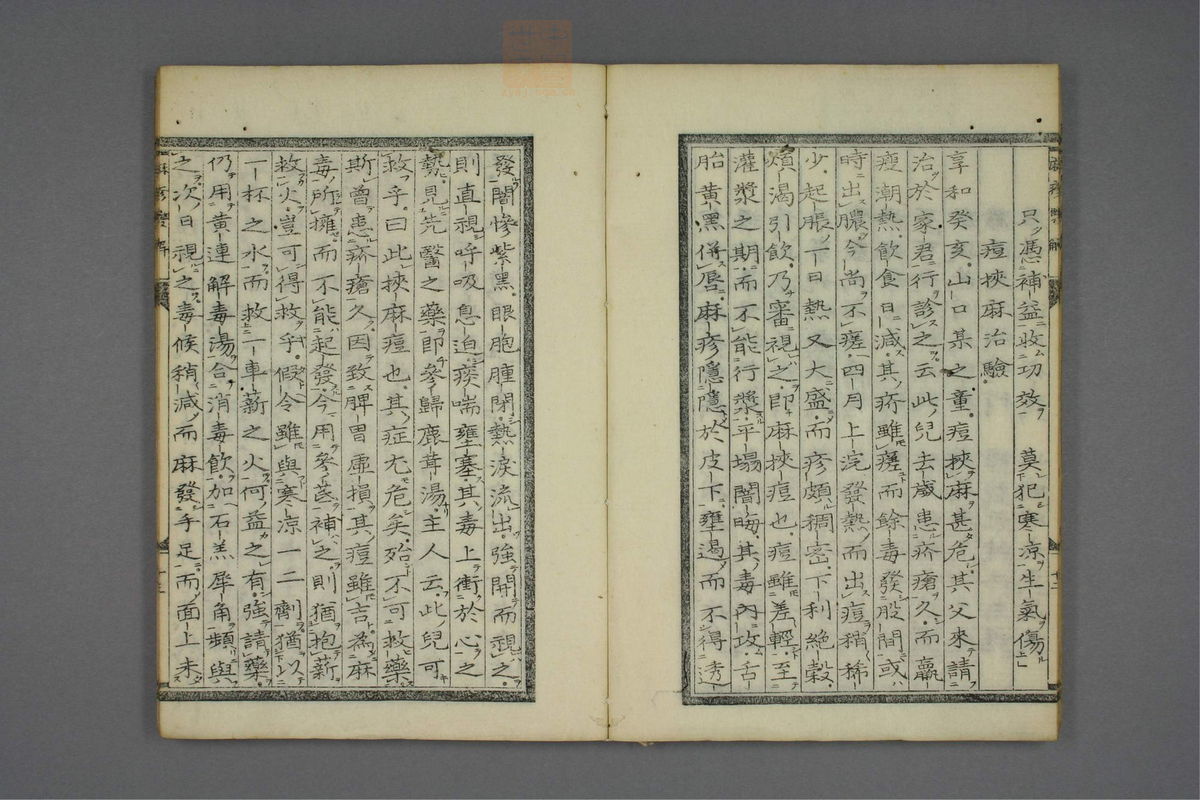 只憑補益收功效 莫犯寒涼生氣傷
痘挾麻治驗
享和癸亥山口某之童痘挾麻甚危其父來請
治於家君行診之云此兒去歲患疥瘡久而羸
瘦潮熱飲食日減其疥雖瘥而餘毒發股間或
時出膿今尚不瘥四月上浣發熱而出痘稍稀
少起脹一日熱又大盛而疹頗稠密下利絶穀
煩渴引飲乃審視之即麻挾痘也痘雖差輕至
灌漿之期而不能行漿平塌闇晦其毒内攻舌
胎黄黑併唇麻疹隱隱於皮下壅遏而不得透
發闇慘紫黑眼胞腫閉熱淚流出強開而視之
則直視呼吸息迫痰喘壅塞其毒上衝於心之
勢見先醫之藥即參歸鹿茸湯主人云此兒可
救乎曰此挾麻痘也其症尤危矣殆不可救藥
斯曾患疥瘡久因致脾胃虛損其痘雖吉為麻
毒所擁而不能起發今用參芪補之則猶抱薪
救火豈可得救乎假令雖與寒涼一二劑猶以
一杯之水而救一車薪之火何益之有強請藥
仍用黄連解毒湯合消毒飲加石羔犀角頻與
之次日視之毒候稍減而麻發手足而面上未